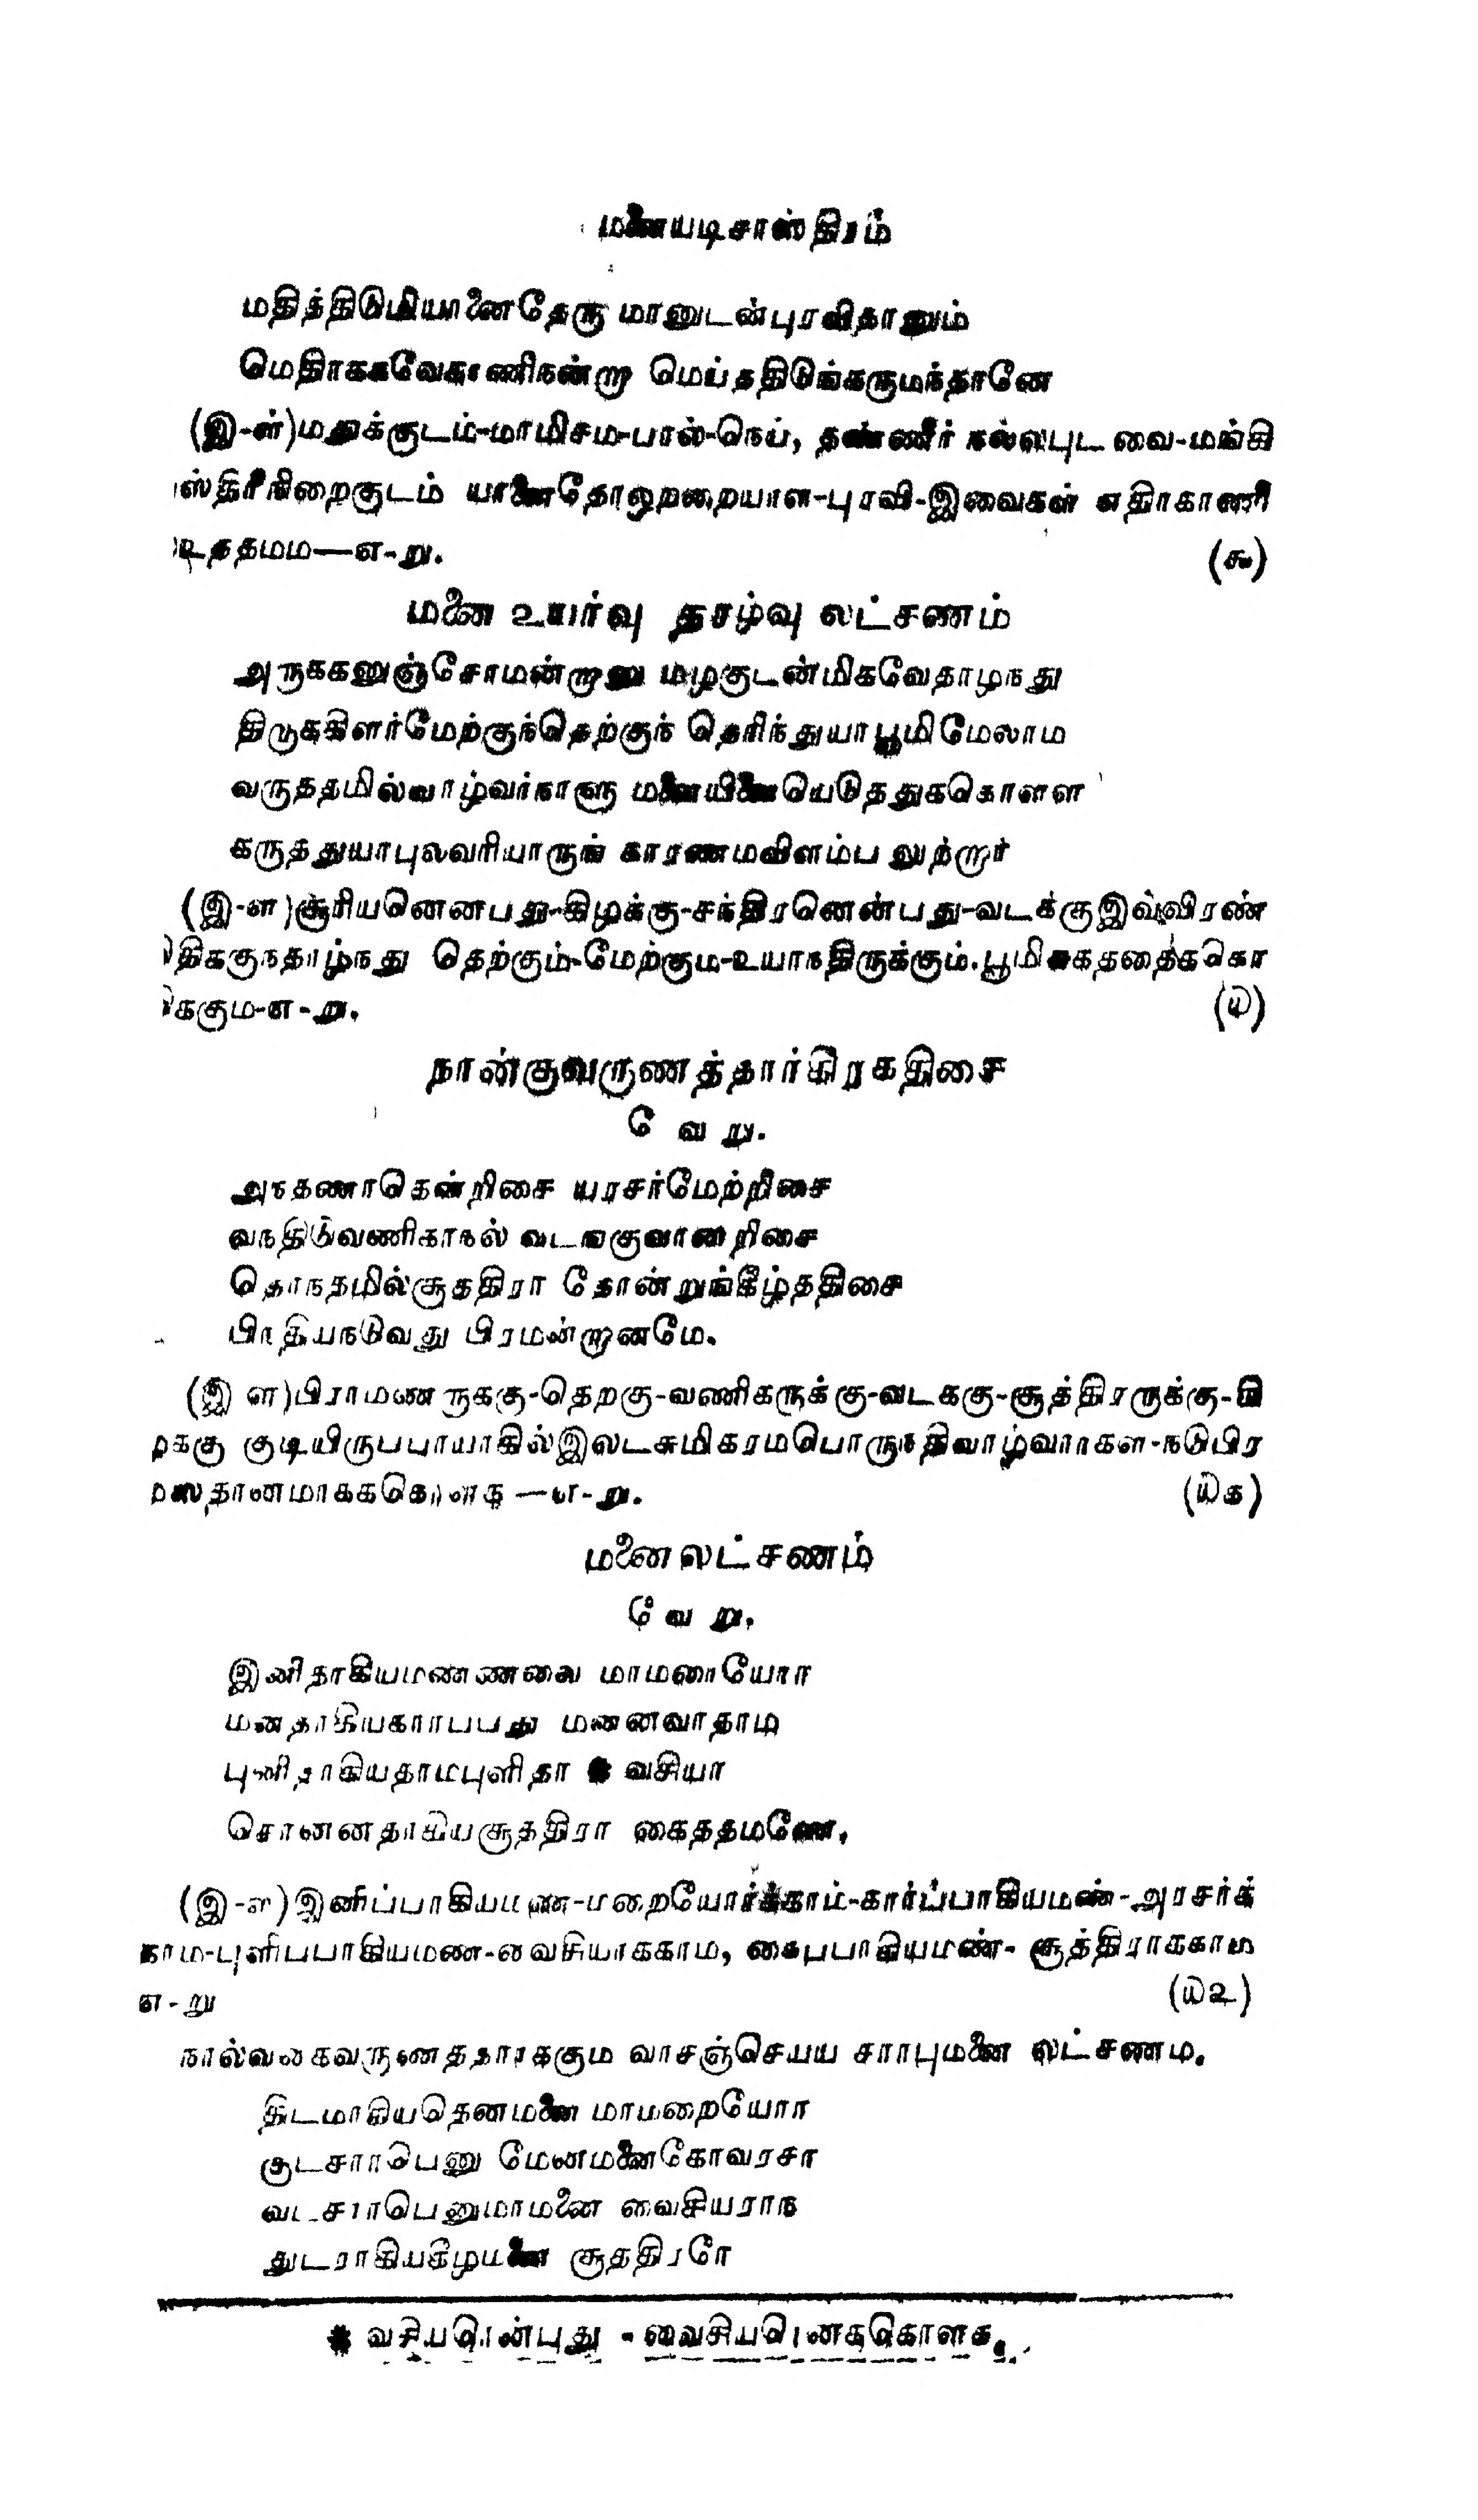 மனையடிசாஸ்திரம்
மதித்திடுமியானைதேரு மானுடன்புரவிதானும்
மெதிராகவேகாணிநன்று மெய்ததிடுங்கருமந்தானே
(இ-ள்)மதுக்குடம்-மாமிசம-பால்-நெய், தண்ணீர் நல்லபுடவை-மங்கி
ஸ்திரீநிறைகுடம் யானை இவைகள் எதிர்காணி
த்தமம—எ-று. (௯)
மனை உயர்வு தாழ்வு லட்சணம்
அருககனுஞ்சோமன்றானு மழகுடன்மிகவேதாழநது
திருககிளர்மேற்குந்தெற்குந் தெரிந்துயாபூமிமேலாம
வருததமில்வாழ்வர்நாளு மனையினையெடுததுககொளள
கருதது்யாபுலவரியாருங் காரணமவிளம்ப லுற்றார்
(இ-ள)சூரியனெனபது-கிழக்கு-சந்திரனென்பது-வடக்குஇவ்விரண்
திககுநதாழ்நது தெற்கும்-மேற்கும-உயாநதிருக்கும்.பூமிசுகததைககொ
ககும-எ-று. (ய)
நான்குவருணத்தார்கிரகதிசை
வே று.
அநதணாதென்றிசை யரசர்மேற்றிசை
வநதிடுவணிகாநல் வடஙகுவானறிசை
தொநதமில்சூததிரா தோன்றுங்கீழ்ததிசை
பிரதியநடுவது பிரமன்றானமே.
(இ ள)பிராமணருககு-தெறகு-வணிகருக்கு-வடககு-சூத்திரருக்கு-கி
ழககு குடியிருபபாயாகில்இலடசுமிகரமபொருநதிவாழ்வாாகள-நடுபிர
மஸ்தானமாகககொளக —எ-று. (யக)
மனைலட்சணம்
வே று.
இனிதாகியமணணவை மாமறையோா
மனதாகியகாாபபது மனனவாதாம
புளிதாகியதாமபுளிதா * வசியா
சொனனதாகியசூததிரா கைததமணே.
(இ-ள)இனிப்பாகியமண-மறையோர்க்காம்-கார்ப்பாகியமண்-அரசர்க்
காம-புளிபபாகியமண-வைசியாககாம, கைபபாகியமண்- சூத்திராககாம
எ-று (ய௨)
நால்வகைவருணததாரககும வாசஞ்செயய சாாபுமனை லட்சணம.
திடமாகியதெனமனை மாமறையோா
குடசாாபெனு மேனமனைகோவரசா
வடசாாபெனுமாமனை வைசியராந
துடராகியகிழமனை சூததிரரே
* வசியரென்புது - வைசியரெனககொளக.